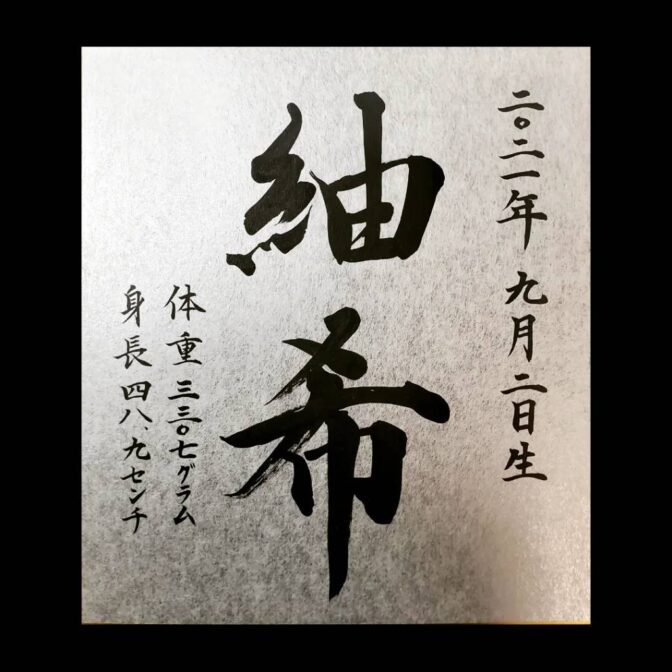 二〇二一年 九月二日生
紬希
体重 三三〇七グラム
身長 四八、九センチ